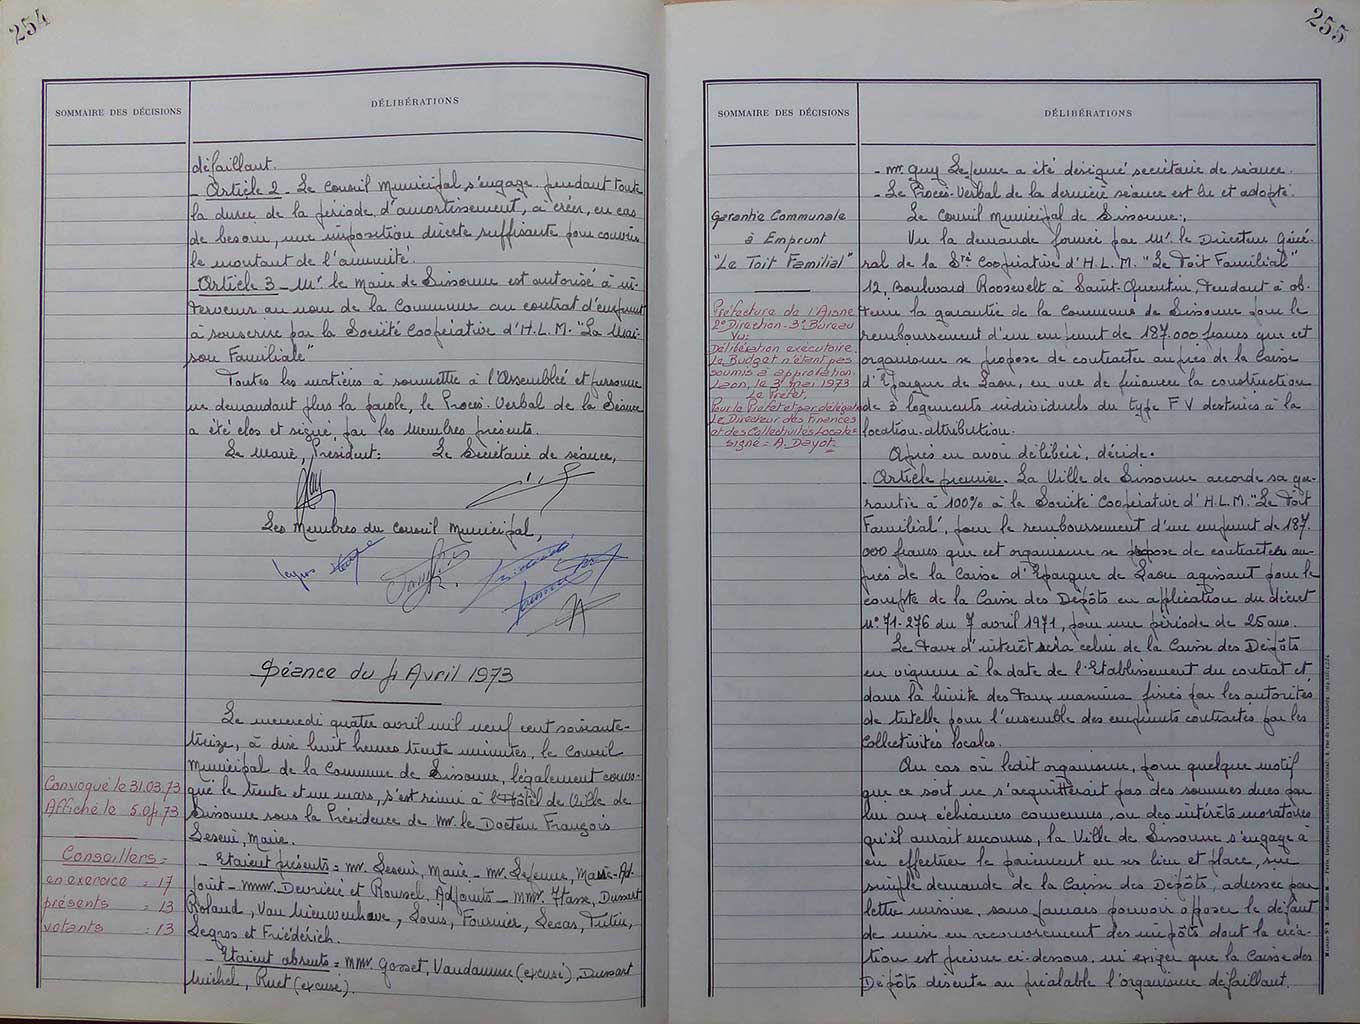 254
SOMMAIRE DES DÉCISIONS
DÉLIBÉRATIONS
défaillant.
- Article 2 - Le Conseil Municipal s'engage pendant toute
la durée de la période d'amortissement, à créer, en cas
de besoin, une imposition directe suffisante pour couvrir
le montant de l'annuité.
Article 3 - Mr le Maire de Sissonne est autorisé à in-
tervenir au nom de la Commune au contrat d'emprunt
à souscrire par la Société Coopérative d'H.L.M. "La Mai-
son Familiale"
Toutes les matières à soumettre à l'Assemblée et personne
ne demandant plus la parole, le Procès-Verbal de la Séance
a été clos et signé, par les membres présents.
Le Maire, Président: Le Secrétaire de séance,
Les Membres du Conseil Municipal,
Séance du 4 Avril 1973
Le mercredi quatre avril mil neuf cent soixante-
treize, à dix huit heures trente minutes, le Conseil
Municipal de la Commune de Sissonne, légalement convo-
qué le trente et un mars, s'est réuni à l'Hôtel de Ville de
Sissonne sous la Présidence de Mr. le Docteur François
Leseur, Maire.
Convoqué le 31.03.73
Affiché le 5.04.73
Conseillers =
en exercice = 17
présents = 13
votants = 13
- Etaient présents = Mr. Leseur, Maire - Mr. Lefeuve, Maire-Ad-
joint - MMr. Devrière et Roussel, Adjoints - MMr. Hasse, Dussart
Roland, Van Nieuwenhove, Louis, Fournier, Lecas, Tutin,
Legros et Friédérich.
- Etaient absents = MMr. Gosset, Vandamme (excusé), Dussart
Michel, Ruet (excusé).
255
SOMMAIRE DES DÉCISIONS
DÉLIBÉRATIONS
- Mr. Guy Lefeuve a été désigné secrétaire de séance.
- Le Procès-Verbal de la dernière séance est lu et adopté.
Garantie Communale
à Emprunt
"Le Toit Familial"
Préfecture de l'Aisne
2e Direction - 3e Bureau
Vu:
Délibération exécutoire
le Budget n'étant pas
soumis à approbation.
Laon, le 3 mai 1973
Le Préfet,
Pour le Préfet et par délégation
Le Directeur des Finances
et des Collectivités Locales
signé = A. Dayot =
Le Conseil Municipal de Sissonne,
Vu la demande formée par Mr. le Directeur Géné-
ral de la Sté Coopérative d'H.L.M. "Le Toit Familial"
12, Boulevard Roosevelt à Saint-Quentin, tendant à ob-
tenir la garantie de la Commune de Sissonne pour le
remboursement d'un emprunt de 187.000 francs que cet
organisme se propose de contracter auprès de la Caisse
d'Epargne de Laon, en vue de financer la construction
de 3 logements individuels du type F V destinés à la
location-attribution.
Après en avoir délibéré, décide.
- Article premier. La Ville de Sissonne accorde sa ga-
rantie à 100% à la Société Coopérative d'H.L.M. "Le Toit
Familial", pour le remboursement d'une emprunt de 187.
000 francs que cet organisme se propose de contracter au-
près de la Caisse d'Epargne de Laon agissant pour le
compte de la Caisse des Dépôts en application du décret
n° 71-276 du 7 avril 1971, pour une période de 25 ans.
Le Taux d'intérêt sera celui de la Caisse des Dépôts
en vigueur à la date de l'Etablissement du contrat et
dans la limite des taux maxima fixés par les autorités
de tutelle pour l'ensemble des emprunts contractés par les
Collectivités locales.
Au cas où ledit organisme, pour quelque motif
que ce soit ne s'acquitterait pas des sommes dues par
lui aux échéances convenues, ou des intérêts moratoires
qu'il aurait encourus, la Ville de Sissonne s'engage à
en effectuer le paiement en ses lieu et place, sur
simple demande de la Caisse des Dépôts, adressée par
lettre missive, sans jamais pouvoir opposer le défaut
de mise en recouvrement des impôts dont la créa-
tion est prévue ci-dessous, ni exiger que la Caisse des
Dépôts discute au préalable l'organisme défaillant.